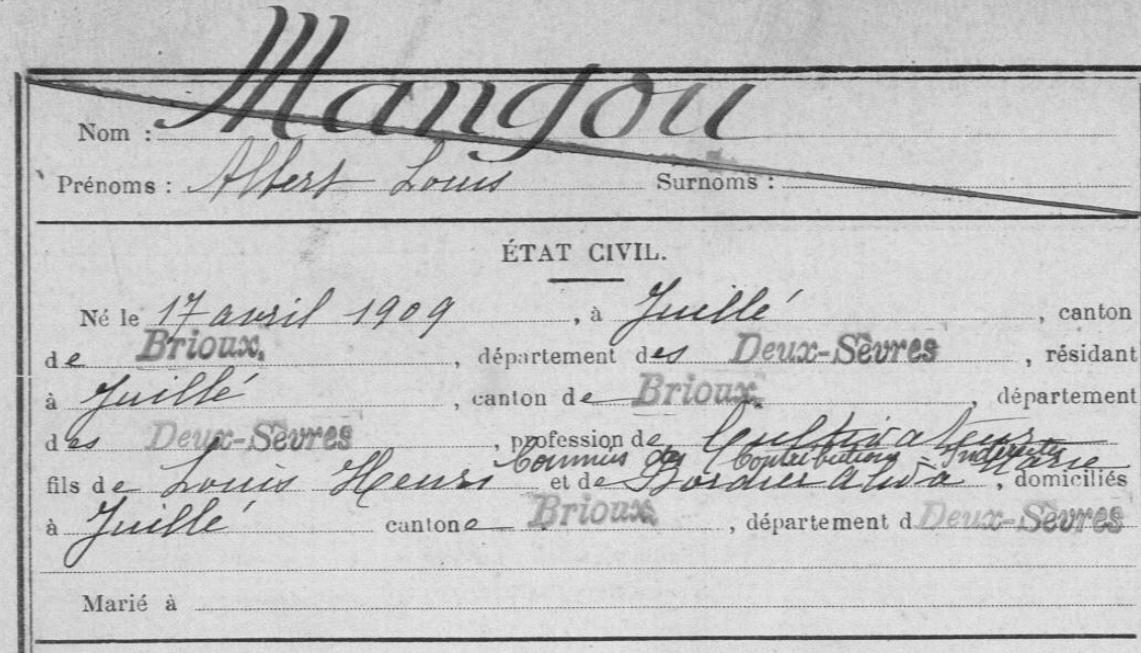 Nom : Mangou
Prénoms : Albert Louis Surnoms :
ÉTAT CIVIL.
Né le 17 avril 1909, à Juillé, canton
de Brioux, département des Deux-Sèvres, résidant
à Juillé, canton de Brioux, département
des Deux-Sèvres, profession de Cultivateur
Commis des Contributions Indirectes
fils de Louis Henri et de Bordier Alida Marie, domiciliés
à Juillé cantone Brioux, département d Deux-Sèvres
Marié à